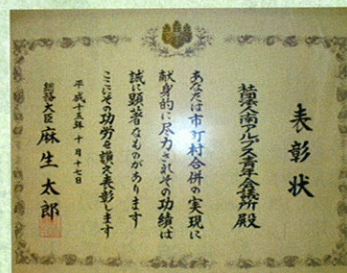 表彰状
南アルプス青年会議所 殿
あなたは市町村合併の実現に
献身的に尽力されその功績は
誠に顕著なものがあります
ここにその功労を讃え表彰します
平成十五年十月十七日
総務大臣 麻生太郎